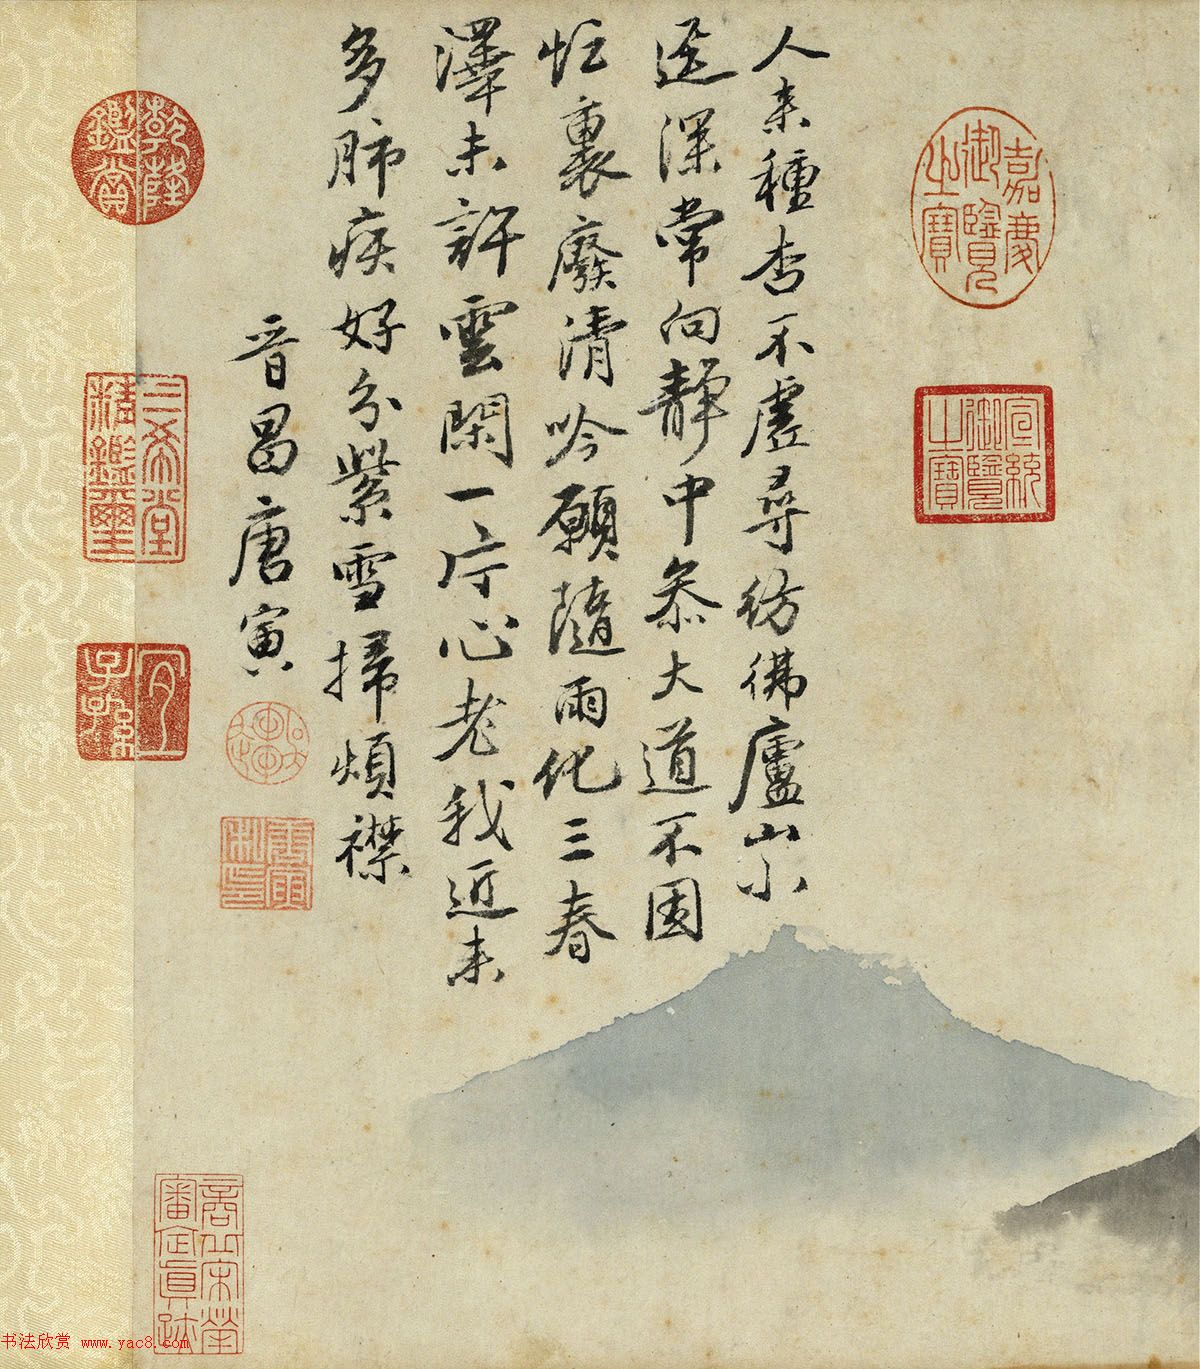 嘉慶御覽之寶
宣統御覽之寶
人来種杏不虛尋彷彿廬山小
逕深常向靜中叅大道不因
忙裏廢清吟願隨雨化三春
澤未許雲閑一片心老我近来
多肺疾好分紫雪掃煩襟
晉昌唐寅
乾隆鑑賞
三希堂精鑑璽
宜子孫
商丘宋犖審定眞跡
书法欣赏 www.yac8.com